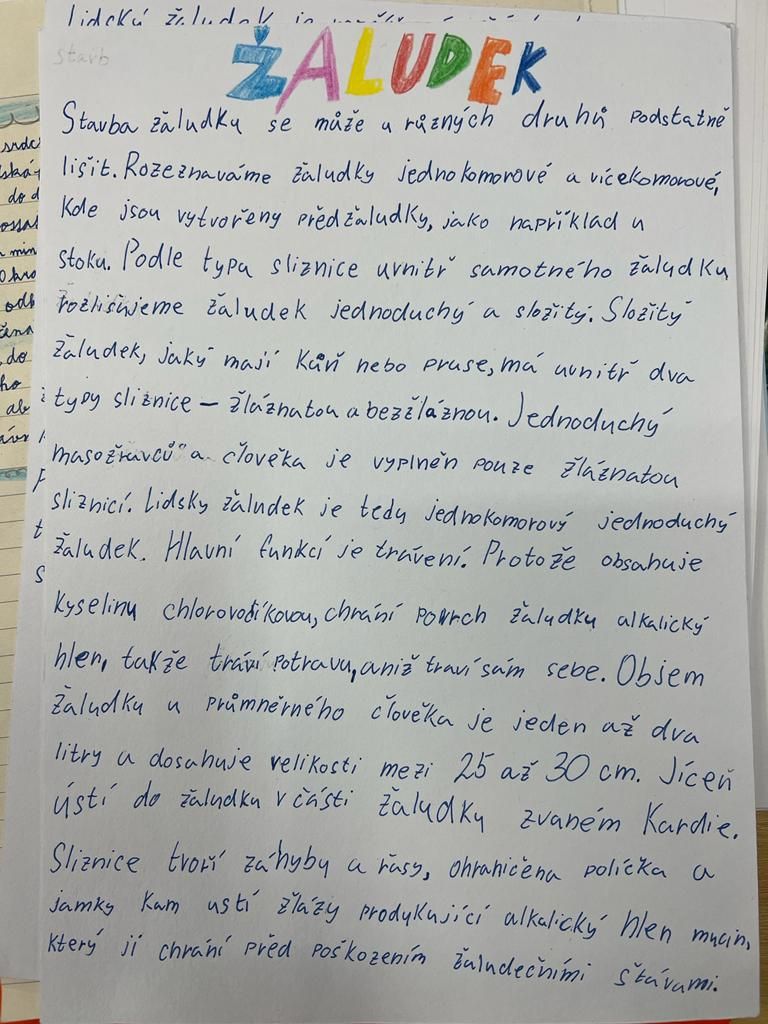 starb
ŽALUDEK
Stavba žaludku se může u různých druhů podstatně
lišit. Rozeznáváme žaludky jednokomorové a vícekomorové,
kde jsou vytvořeny předžaludky, jako například u
stoku. Podle typu sliznice uvnitř samotného žaludku
rozlišujeme žaludek jednoduchý a složitý. Složitý
žaludek, jaký mají kůň nebo pruse, má uvnitř dva
typy sliznice – žláznatou a bezžláznou. Jednoduchý
masožravců a člověka je vyplněn pouze žláznatou
sliznicí. Lidsky žaludek je tedy jednokomorový jednoduchý
žaludek. Hlavní funkcí je trávení. Protože obsahuje
kyselinu chlorovodíkovou, chrání povrch žaludku alkalický
hlen, takže tráví potravu, aniž traví sám sebe. Objem
žaludku u průmněrného člověka je jeden až dva
litry a dosahuje velikosti mezi 25 až 30 cm. Jícen
ústí do žaludku v části žaludky zvaném Kardie.
Sliznice tvoří záhyby a řasy, ohraničena políčka a
jamky kam ustí žlázy produkující alkalický hlen mucin,
který jí chrání před poškozením žaludečními šťávami.